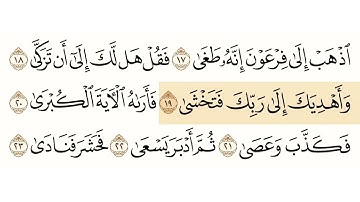 ٱذۡهَبۡ إِلَىٰ فِرۡعَوۡنَ إِنَّهُۥ طَغَىٰ ١٧ فَقُلۡ هَل لَّكَ إِلَىٰٓ أَن تَزَكَّىٰ ١٨
وَأَهۡدِيَكَ إِلَىٰ رَبِّكَ فَتَخۡشَىٰ ١٩ فَأَرَىٰهُ ٱلۡأٓيَةَ ٱلۡكُبۡرَىٰ ٢٠
فَكَذَّبَ وَعَصَىٰ ٢١ ثُمَّ أَدۡبَرَ يَسۡعَىٰ ٢٢ فَحَشَرَ فَنَادَىٰ ٢٣